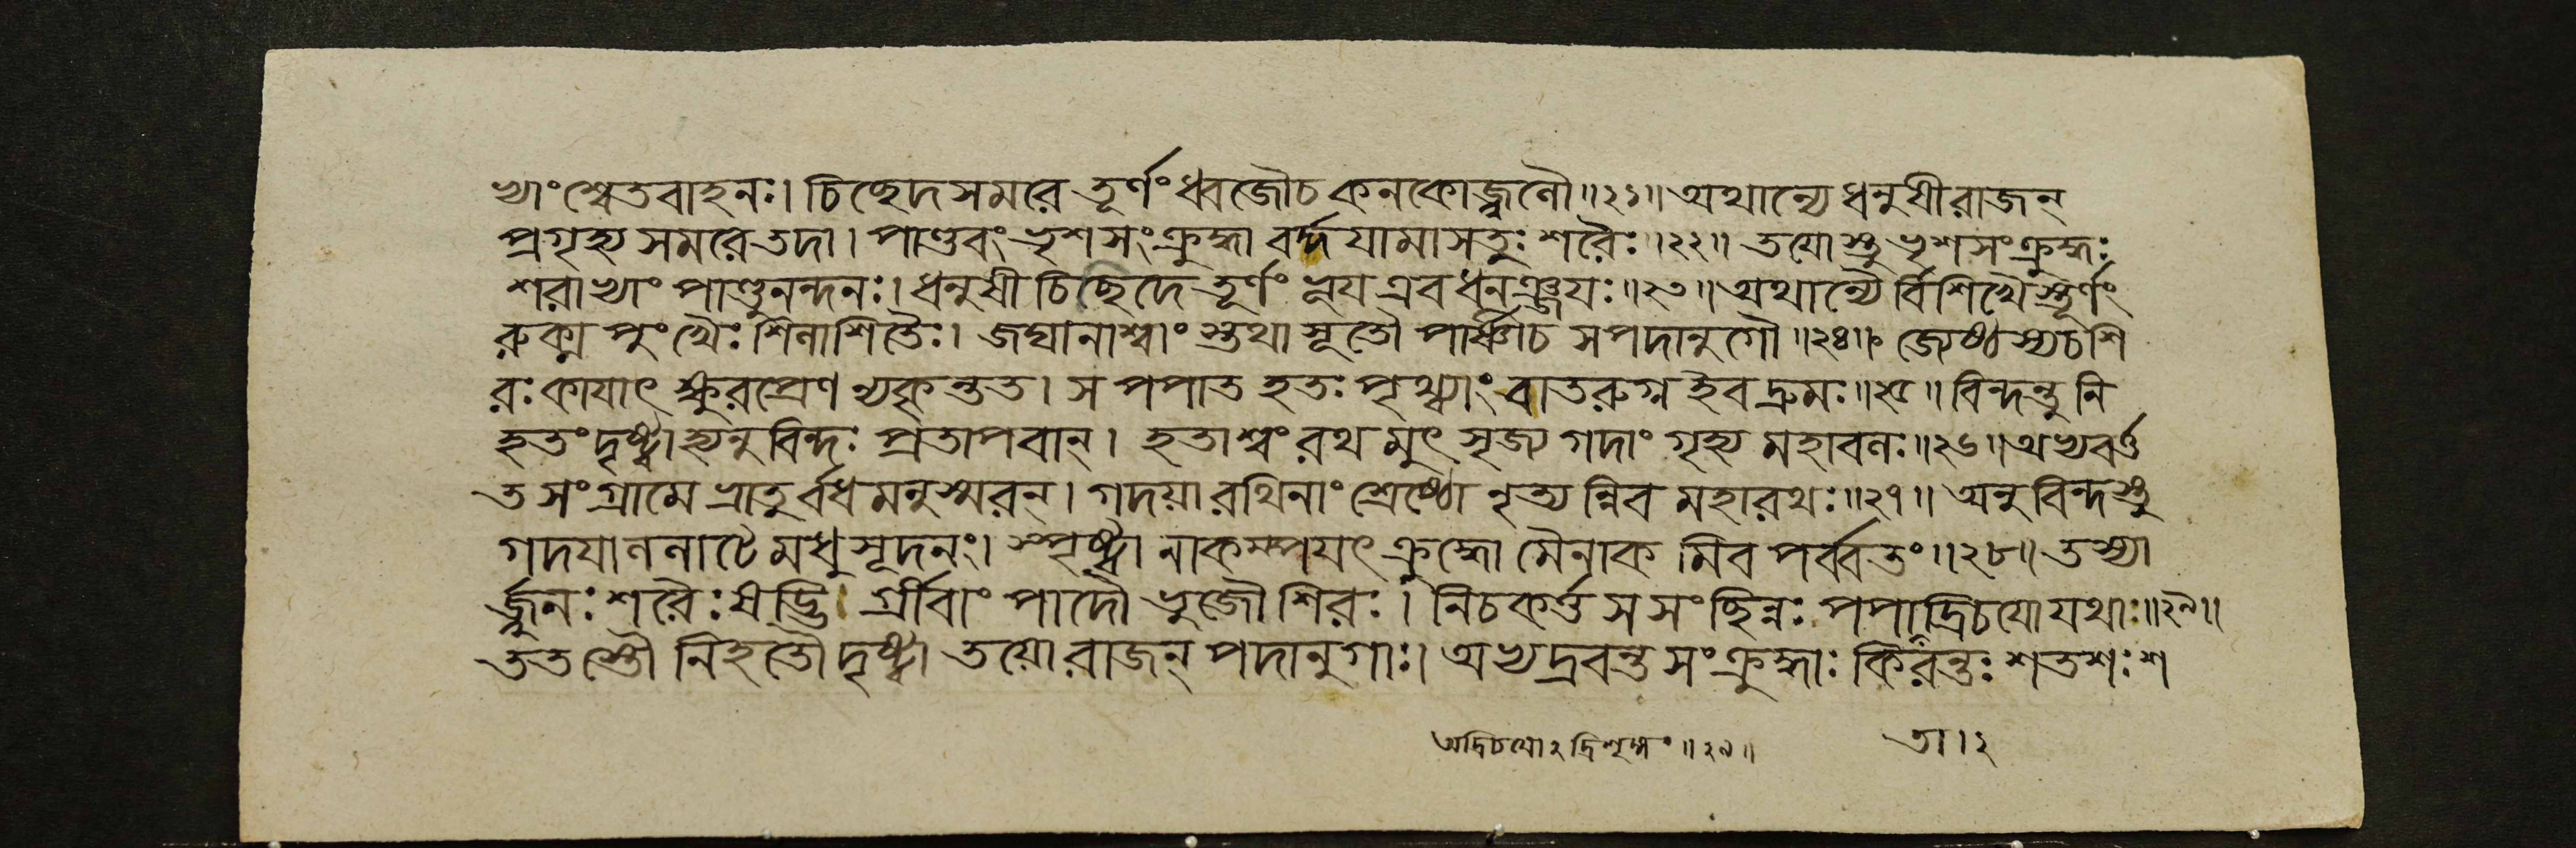 ভ্যাং শ্বেতবাহনঃ। চিচ্ছেদ সমরে তূর্ণং ধ্বজৌ চ কনকোজ্জ্বলৌ॥২১॥ অথান্যে ধনুষী রাজন্
প্রগৃহ্য সমরে তদা। পাণ্ডবং ভৃশসংক্রুদ্ধা বর্দ্দয়ামাসতুঃ শরৈঃ॥২২॥ তয়োস্তু ভৃশসংক্রুদ্ধঃ
শরাভ্যাং পাণ্ডুনন্দনঃ। ধনুষী চিচ্ছিদে তূর্ণং ভূয় এব ধনঞ্জয়ঃ॥২৩॥ অথান্যৈর্বিশিখৈস্তূর্ণং
রুক্মপুংখৈঃ শিলাশিতৈঃ। জঘানাশ্বাংস্তথা সূতৌ পার্ষ্ণী চ সপদানুগৌ॥২৪॥ জ্যেষ্ঠস্য চ শি
রঃ কায়াৎ ক্ষুরপ্রেণ ন্যকৃন্তত। স পপাত হতঃ পৃথ্ব্যাং বাতরুগ্ন ইব দ্রুমঃ॥২৫॥ বিন্দন্তু নি
হতং দৃষ্ট্বা হ্যনুবিন্দঃ প্রতাপবান্। হতাশ্বং রথমুৎসৃজ্য গদাং গৃহ্য মহাবলঃ॥২৬॥ অভ্যবর্ত্ত
ত সংগ্রামে ভ্রাতুর্বধমনুস্মরন্। গদয়া রথিনাং শ্রেষ্ঠো নৃত্যন্নিব মহারথঃ॥২৭॥ অনুবিন্দস্তু
গদয়া ললাটে মধুসূদনং। স্পৃষ্ট্বা নাকম্পয়ৎ ক্রুদ্ধো মৈনাকমিব পর্ব্বতং॥২৮॥ তস্যা
র্জ্জুনঃ শরৈঃ ষড্ভি গ্রীবাং পাদৌ ভুজৌ শিরঃ। নিচকর্ত্ত স সংছিন্নঃ পপাদ্রিচয়ো যথাঃ॥২৯॥
ততস্তৌ নিহতৌ দৃষ্ট্বা তয়ো রাজন্ পদানুগাঃ। অভ্যদ্রবন্ত সংক্রুদ্ধাঃ কিরন্তঃ শতশঃ শ
অদ্রিচয়োঽদ্রিশৃঙ্গং॥২৯॥ তা।২